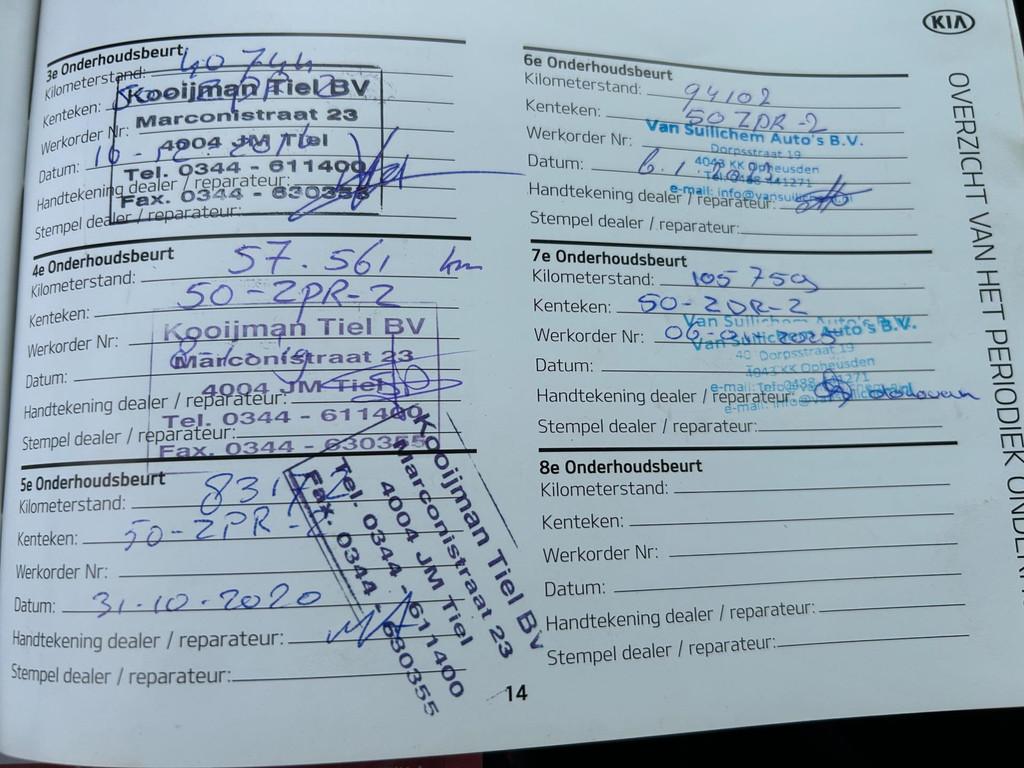 KIA
OVERZICHT VAN HET PERIODIEK
3e Onderhoudsbeurt
Kilometerstand: 40744
Kenteken:
Kooijman Tiel BV
Marconistraat 23
Werkorder Nr:
4004 JM Tiel
Datum:
Tel. 0344 - 611400
Handtekening dealer / reparateur:
Fax. 0344 - 630355
Stempel dealer / reparateur:
4e Onderhoudsbeurt
Kilometerstand: 57.561 km
Kenteken: 50-ZPR-2
Kooijman Tiel BV
Werkorder Nr:
Marconistraat 23
Datum:
4004 JM Tiel
Handtekening dealer / reparateur:
Tel. 0344 - 611400
Stempel dealer / reparateur:
Fax. 0344 - 630355
5e Onderhoudsbeurt
Kilometerstand:
Kenteken: 50-ZPR-
Werkorder Nr:
Datum: 31-10-2020
Handtekening dealer / reparateur:
Stempel dealer / reparateur:
Kooijman Tiel BV
Marconistraat 23
4004 JM Tiel
Tel. 0344 - 611400
Fax. 0344 - 630355
6e Onderhoudsbeurt
Kilometerstand: 94102
Kenteken: 50 ZPR-2
Werkorder Nr:
Van Suilichem Auto's B.V.
Dorpsstraat 19
Datum:
4043 KK Opheusden
Handtekening dealer / reparateur:
Stempel dealer / reparateur:
7e Onderhoudsbeurt
Kilometerstand: 105759
Kenteken: 50-ZPR-2
Werkorder Nr:
Van Suilichem Auto's B.V.
Dorpsstraat 19
Datum:
4043 KK Opheusden
Handtekening dealer / reparateur:
Stempel dealer / reparateur:
8e Onderhoudsbeurt
Kilometerstand:
Kenteken:
Werkorder Nr:
Datum:
Handtekening dealer / reparateur:
Stempel dealer / reparateur:
14